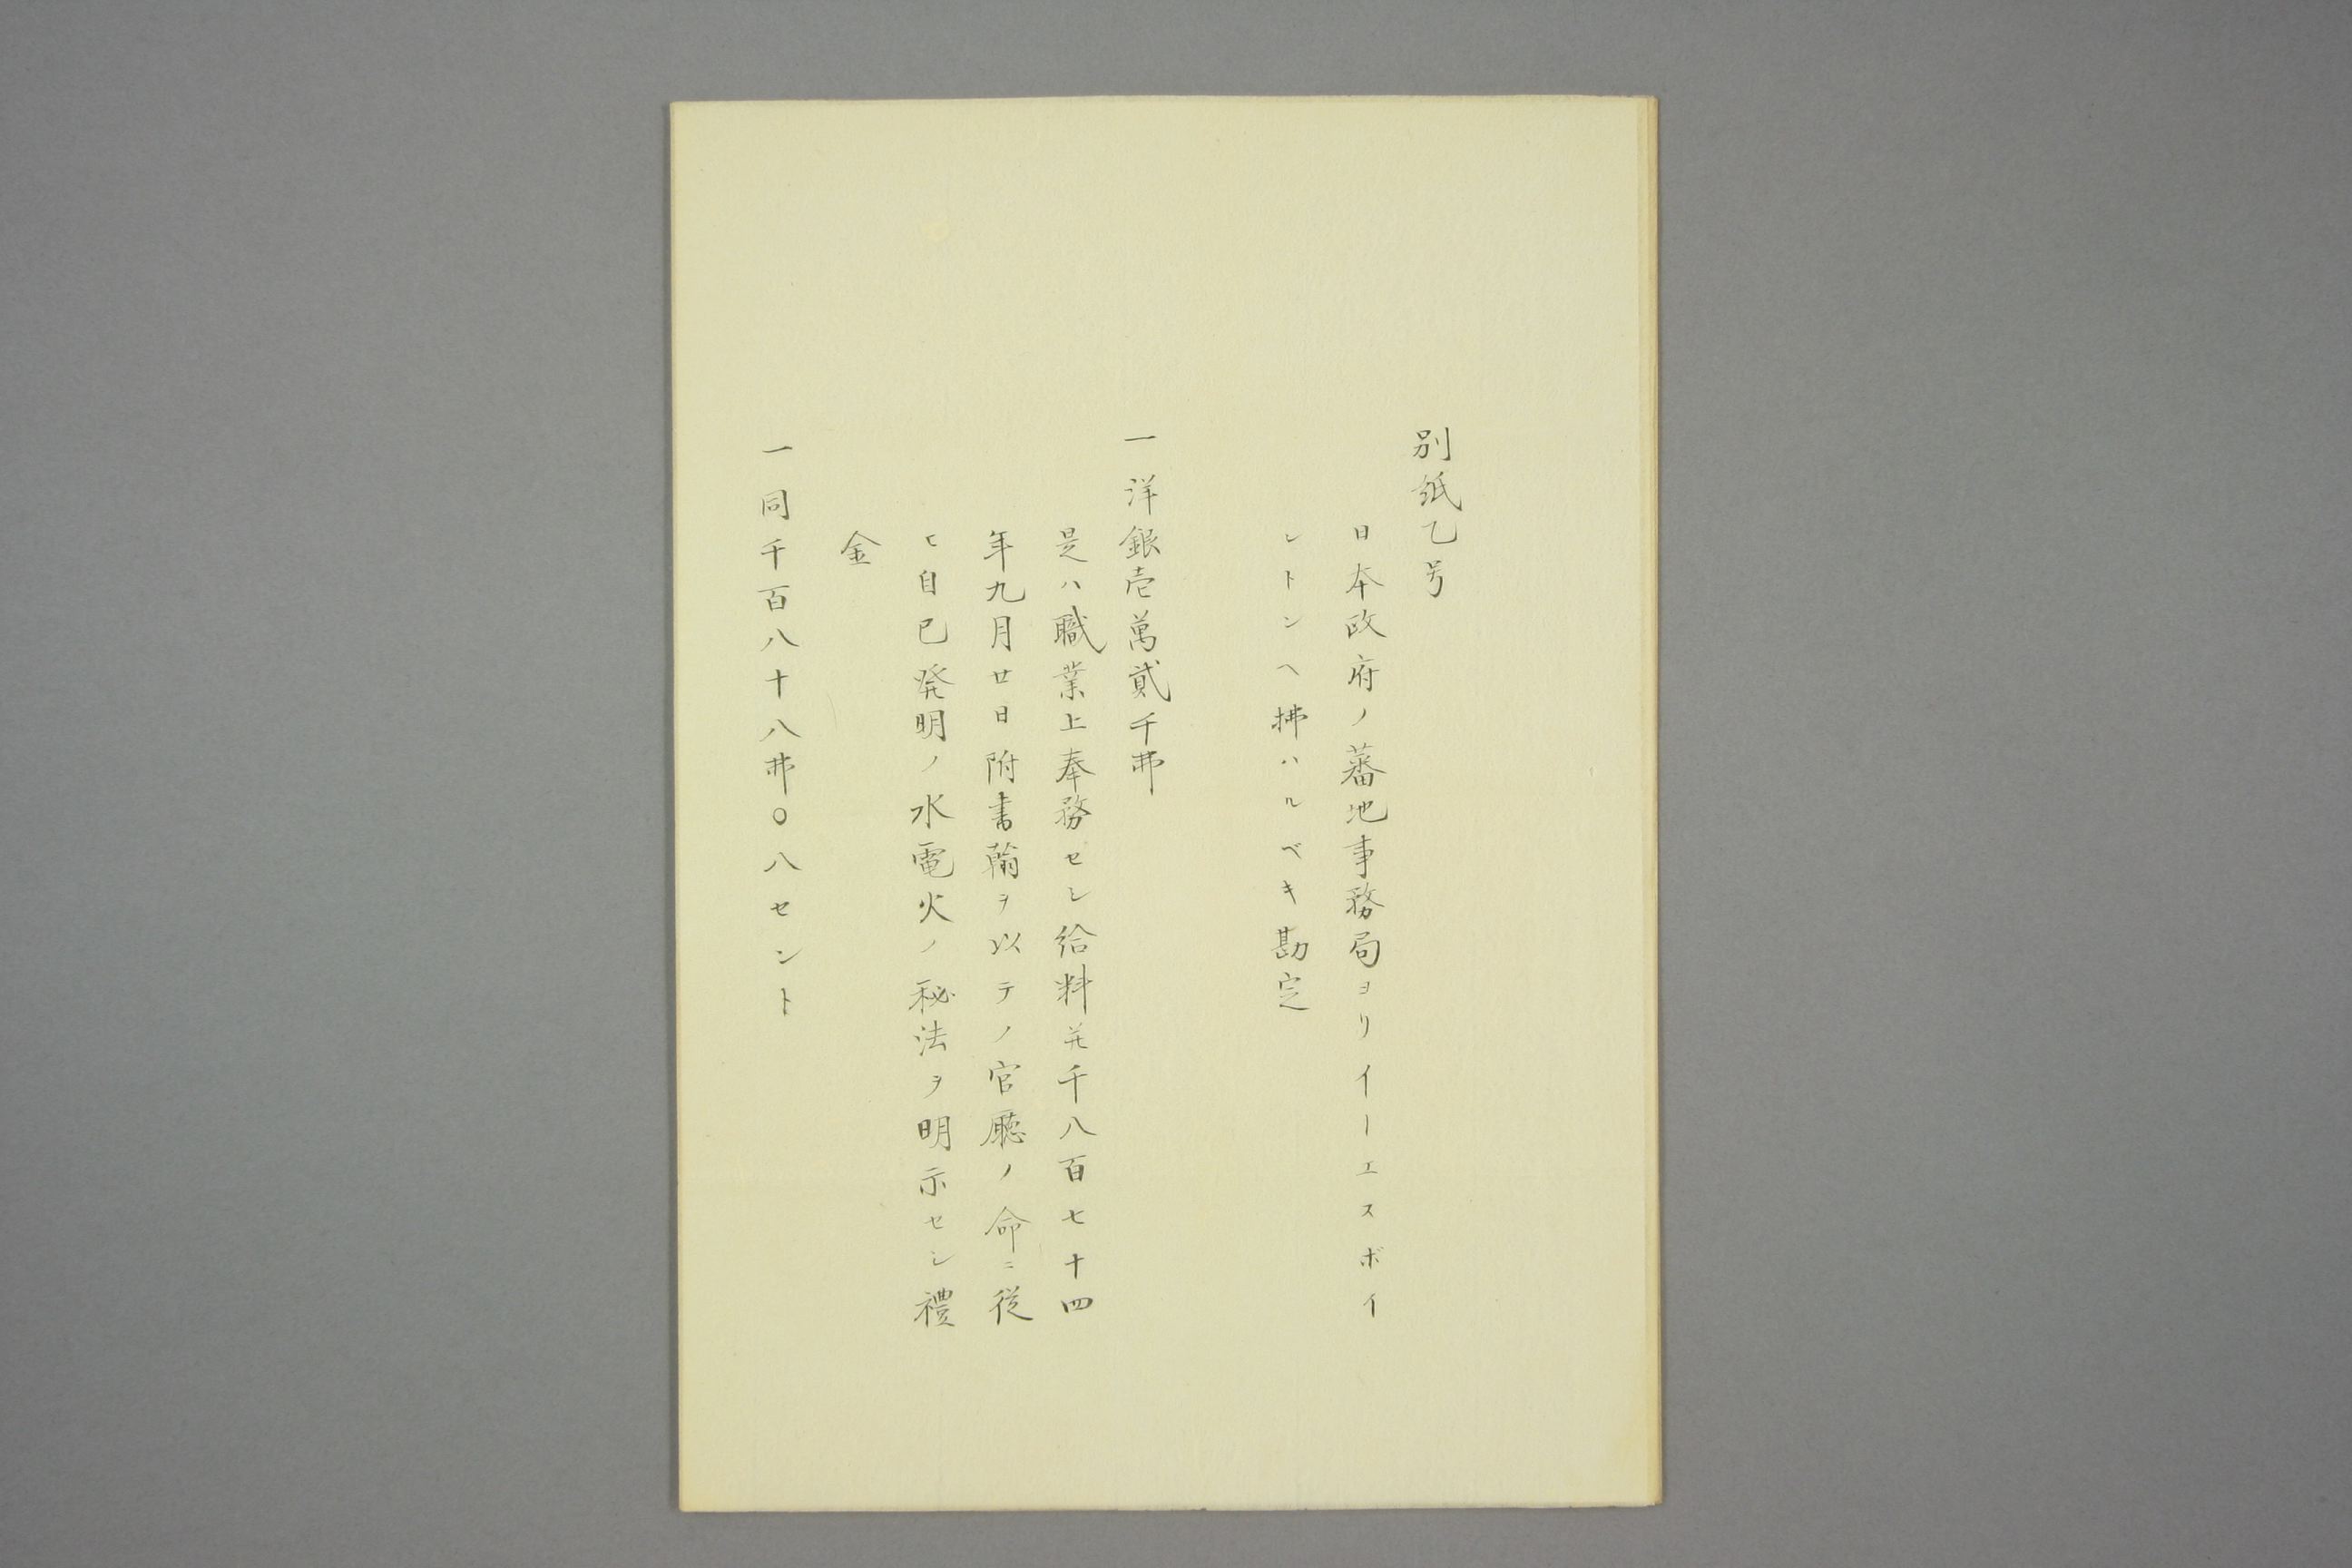 別紙乙号
日本政府ノ蕃地事務局ヨリイーエスボイ
ントンヘ拂ハルベキ勘定
一洋銀壱萬貳千弗
是ハ職業上奉務セシ給料幷千八百七十四
年九月廿日附書翰ヲ以テノ官廳ノ命ニ従
ヒ自己発明ノ水電火ノ秘法ヲ明示セシ禮
金
一同千百八十八弗〇八セント